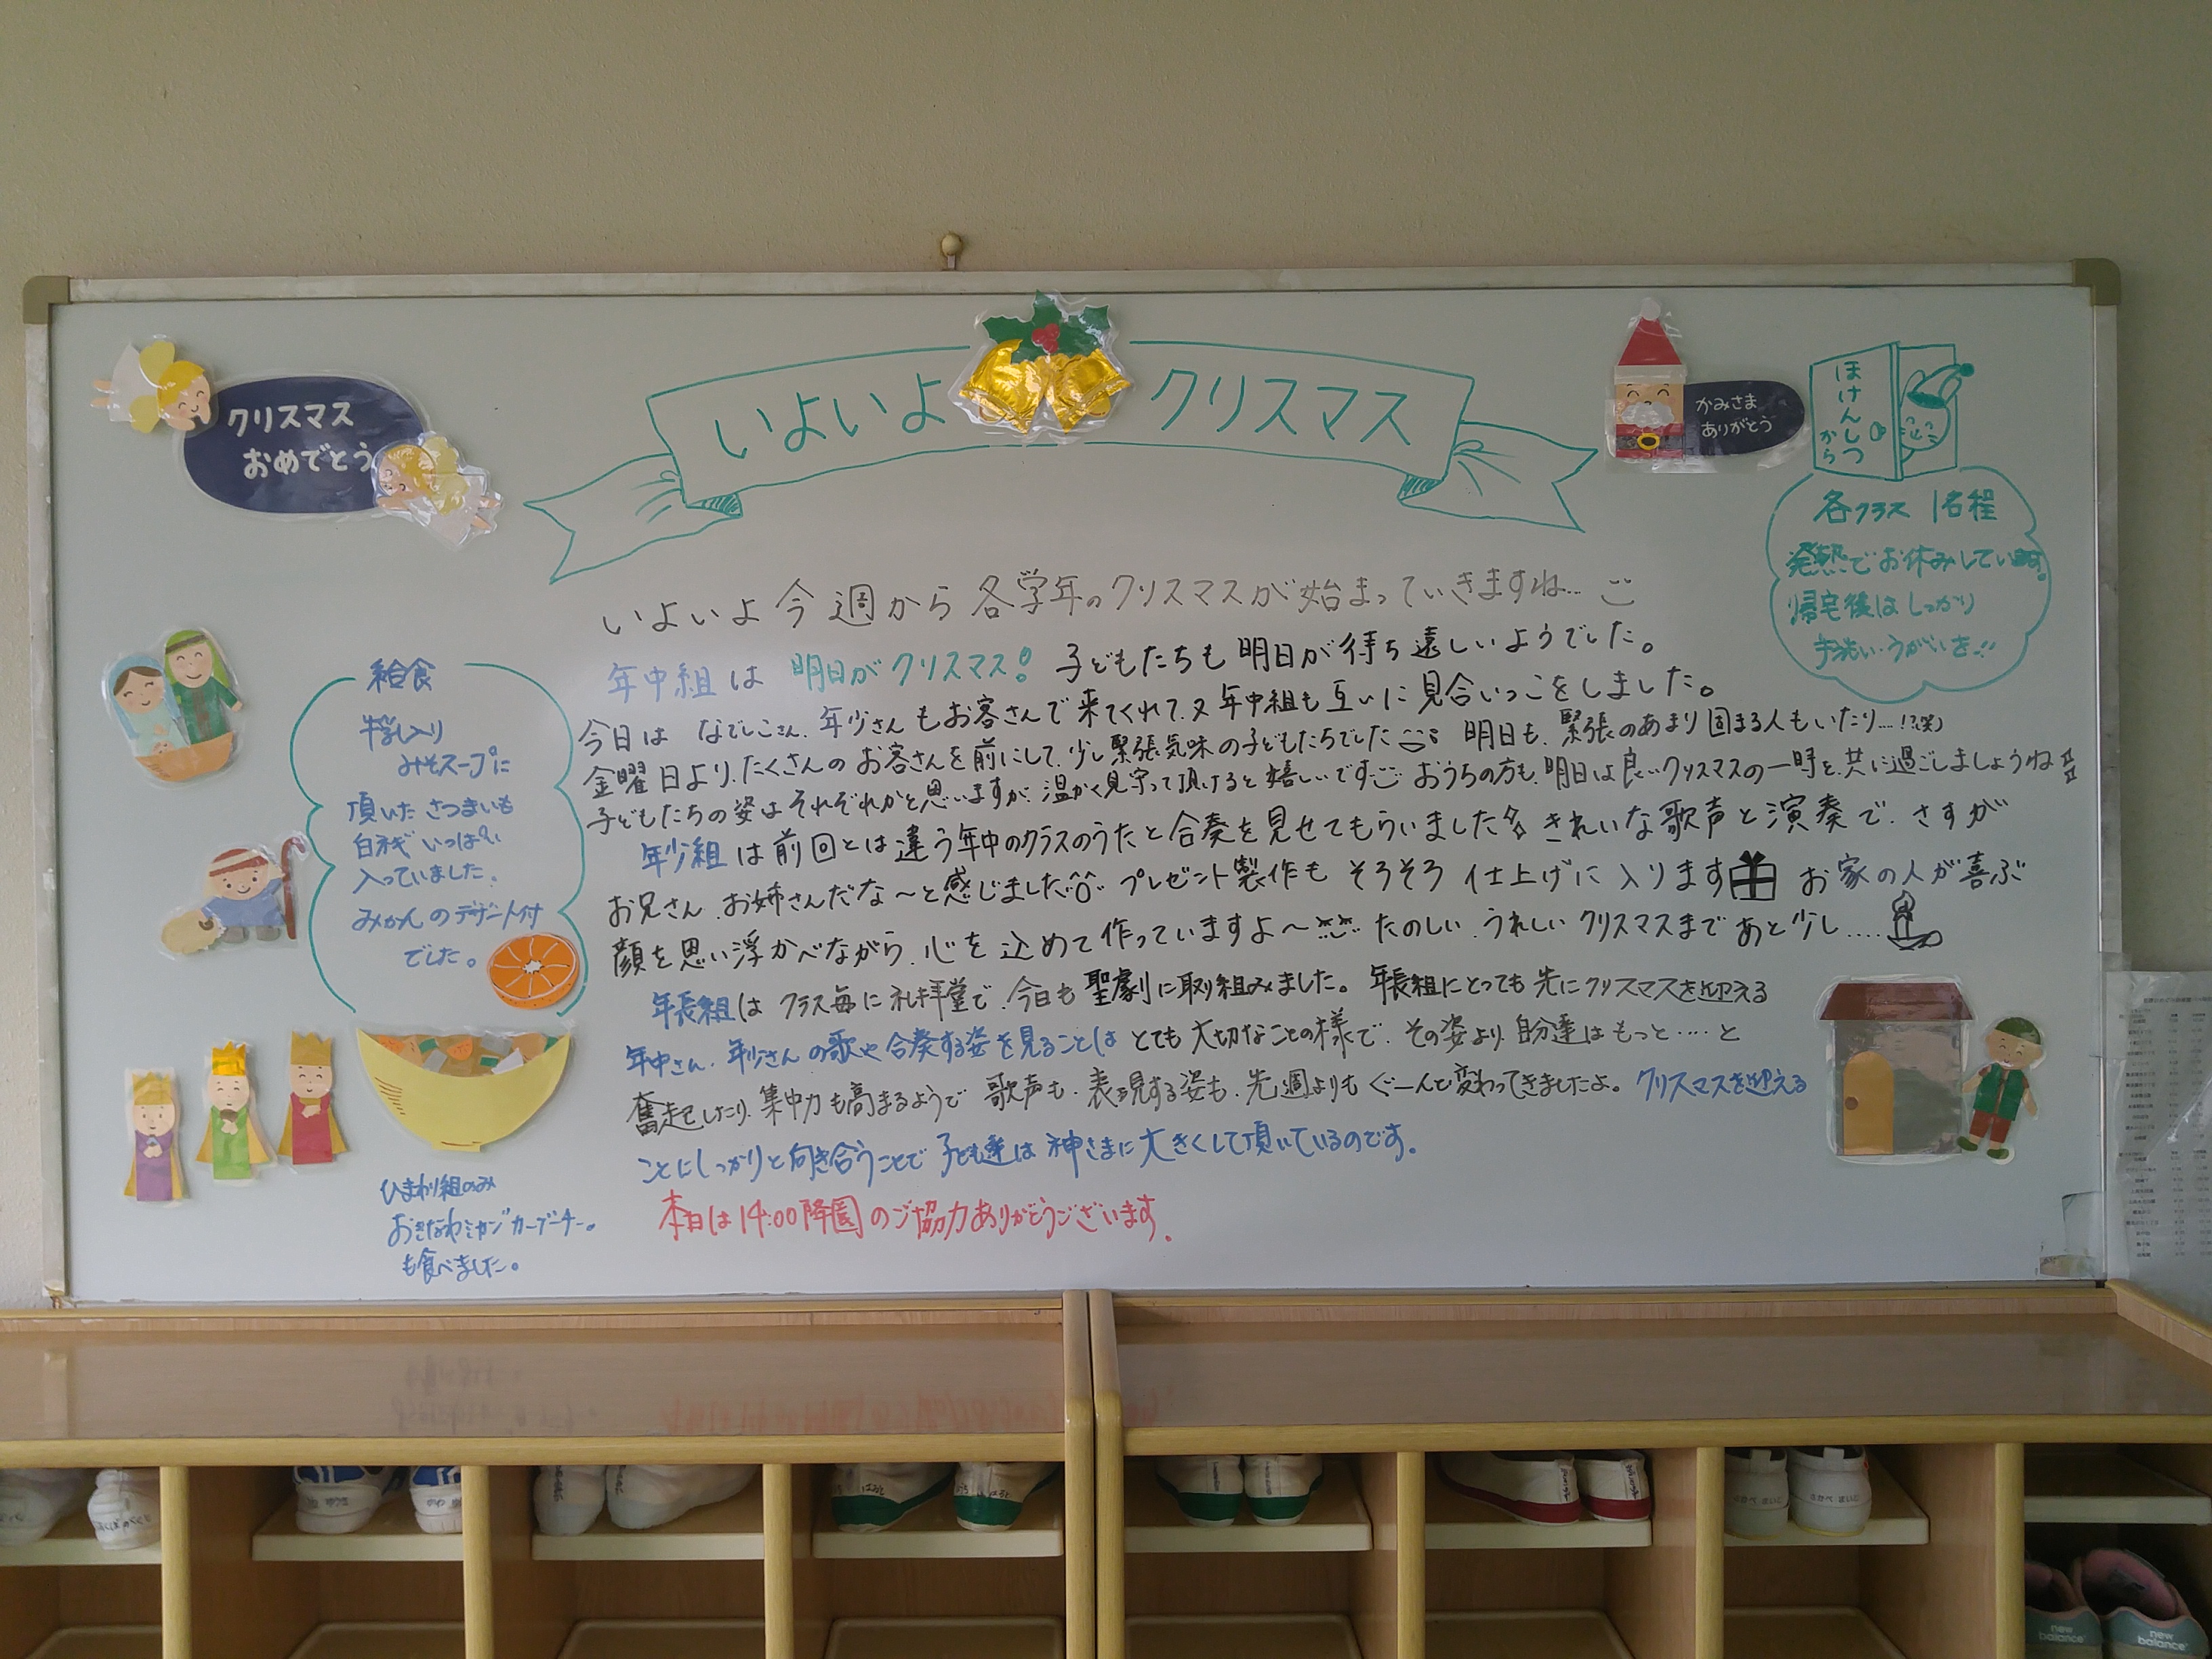 クリスマス
おめでとう
いよいよ クリスマス
かみさま
ありがとう
ほけんしつ
から
各クラス 1名程
発熱でお休みしています。
帰宅後はしっかり
手洗い・うがいを!!
いよいよ今週から各学年のクリスマスが始まっていきますね…
年中組は 明日がクリスマス! 子どもたちも明日が待ち遠しいようでした。
今日は なでしこさん、年少さんもお客さんで来てくれて、又年中組も互いに見合いっこをしました。
金曜日より、たくさんのお客さんを前にして、少し緊張気味の子どもたちでした 明日も、緊張のあまり固まる人もいたり…!?(笑)
子どもたちの姿はそれぞれかと思いますが、温かく見守って頂けると嬉しいです おうちの方も、明日は良いクリスマスの一時を、共に過ごしましょうね
年少組は前回とは違う年中のクラスのうたと合奏を見せてもらいました きれいな歌声と演奏で、さすが
お兄さん、お姉さんだな〜と感じました プレゼント製作も そろそろ 仕上げに入ります お家の人が喜ぶ
顔を思い浮かべながら、心を込めて作っていますよ〜 たのしい、うれしいクリスマスまで あと少し....
年長組は クラス毎に礼拝堂で、今日も聖劇に取り組みました。年長組にとっても先にクリスマスを迎える
年中さん、年少さんの歌や合奏する姿を見ることは とても大切なことの様で、その姿より、自分達はもっと....と
奮起したり、集中力も高まるようで 歌声も、表現する姿も、先週よりもぐーんと変わってきましたよ。クリスマスを迎える
ことにしっかりと向き合うことで 子ども達は神さまに大きくして頂いているのです。
本日は14:00降園のご協力ありがとうございます。
給食
牛乳入り
みそスープに
頂いた さつまいも
白ネギ いっぱい
入っていました。
みかんのデザート付
でした。
ひまわり組のみ
おきなわミカン"カーブチー"。
も食べました。
new balance
new balance